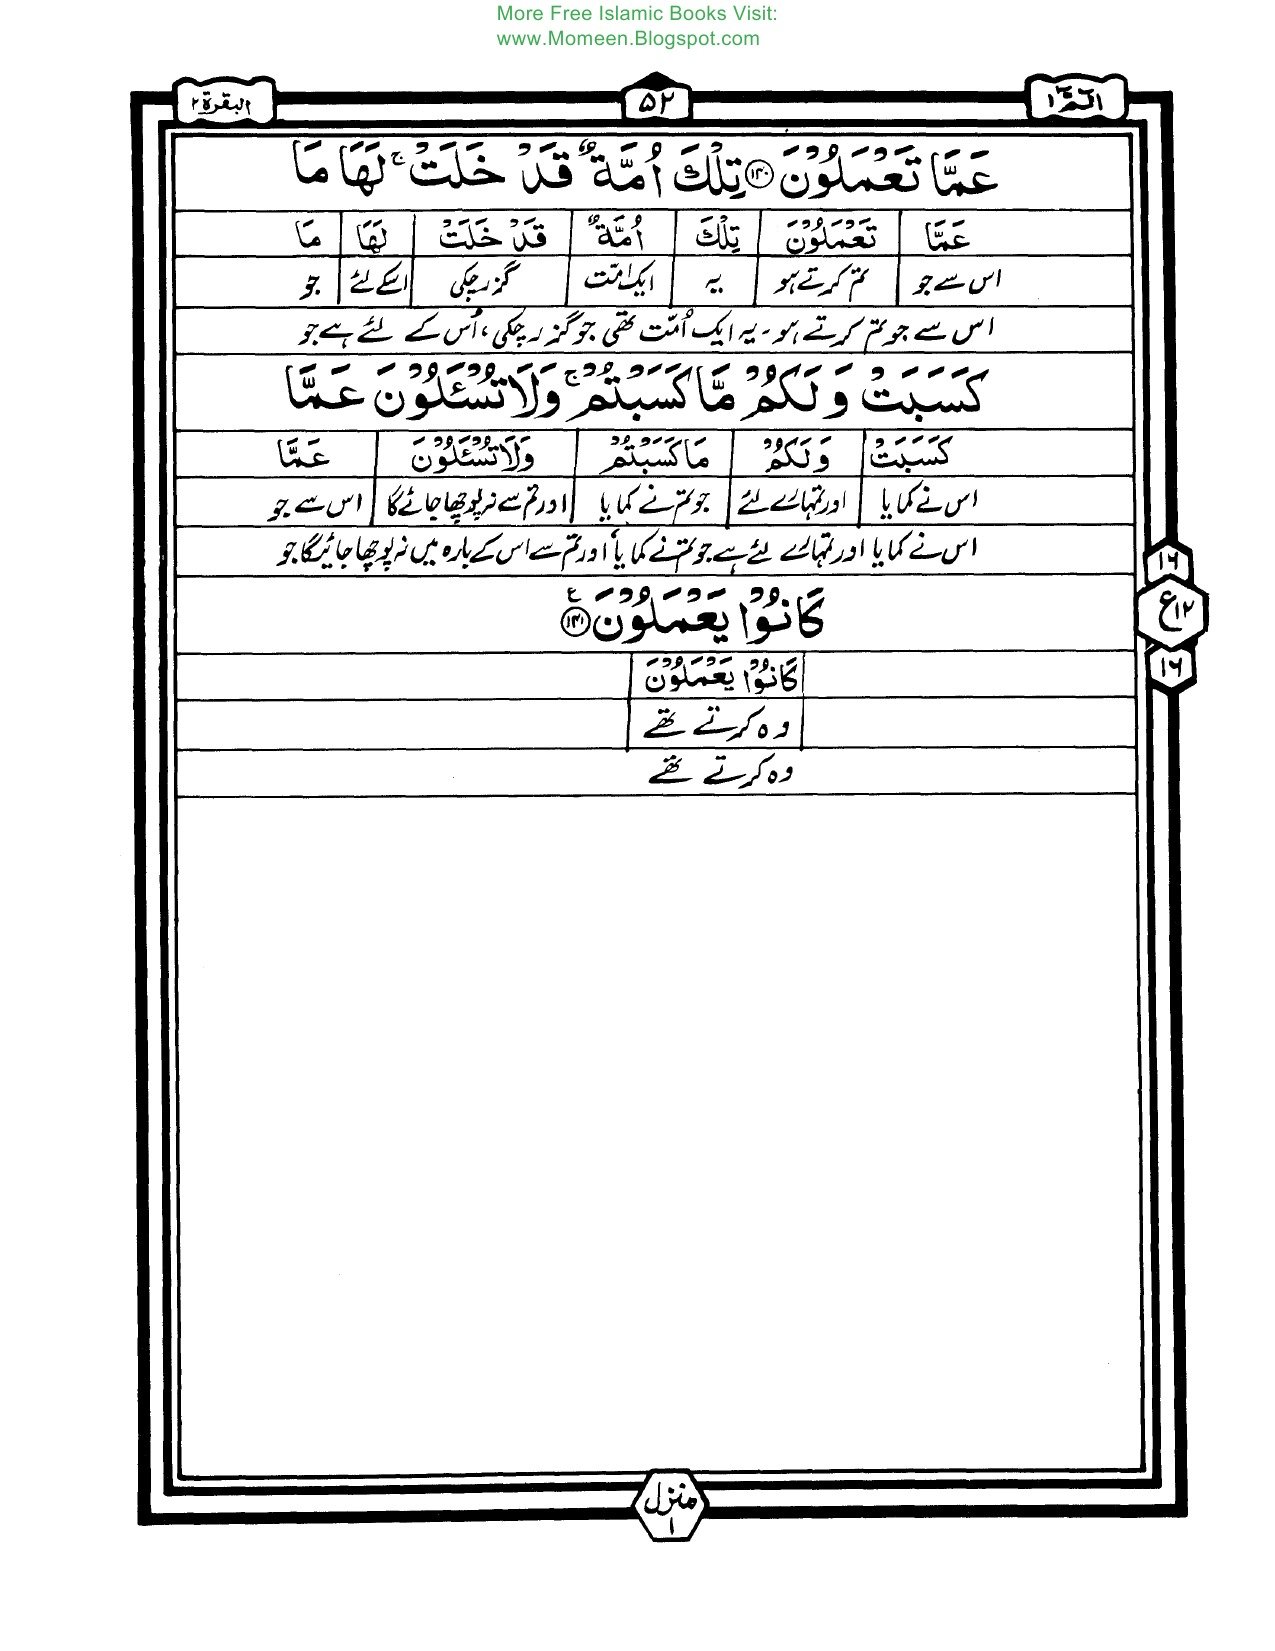 More Free Islamic Books Visit:
www.Momeen.Blogspot.com
الٓمّٓ ۱ ۵۲ البقرة ۲
عَمَّا تَعْمَلُوْنَ ۝۱۴۰ تِلْكَ اُمَّةٌ قَدْ خَلَتْ ۚ لَهَا مَا
عَمَّا تَعْمَلُوْنَ تِلْكَ اُمَّةٌ قَدْ خَلَتْ لَهَا مَا
اس سے جو تم کرتے ہو یہ ایک امّت گزر چکی اسکے لئے جو
اس سے جو تم کرتے ہو۔ یہ ایک اُمّت تھی جو گزر چکی، اُس کے لئے ہے جو
كَسَبَتْ وَلَكُمْ مَّا كَسَبْتُمْ ۚ وَلَا تُسْـَٔلُوْنَ عَمَّا
كَسَبَتْ وَلَكُمْ مَا كَسَبْتُمْ وَلَا تُسْـَٔلُوْنَ عَمَّا
اس نے کمایا اور تمہارے لئے جو تم نے کمایا اور تم سے نہ پوچھا جائے گا اس سے جو
اس نے کمایا اور تمہارے لئے ہے جو تم نے کمایا اور تم سے اس کے بارہ میں نہ پوچھا جائیگا جو
۱۶
ع ۱۲
۱۶
كَانُوْا يَعْمَلُوْنَ ۝۱۴۱ ع
كَانُوْا يَعْمَلُوْنَ
وہ کرتے تھے
وہ کرتے تھے
منزل
۱